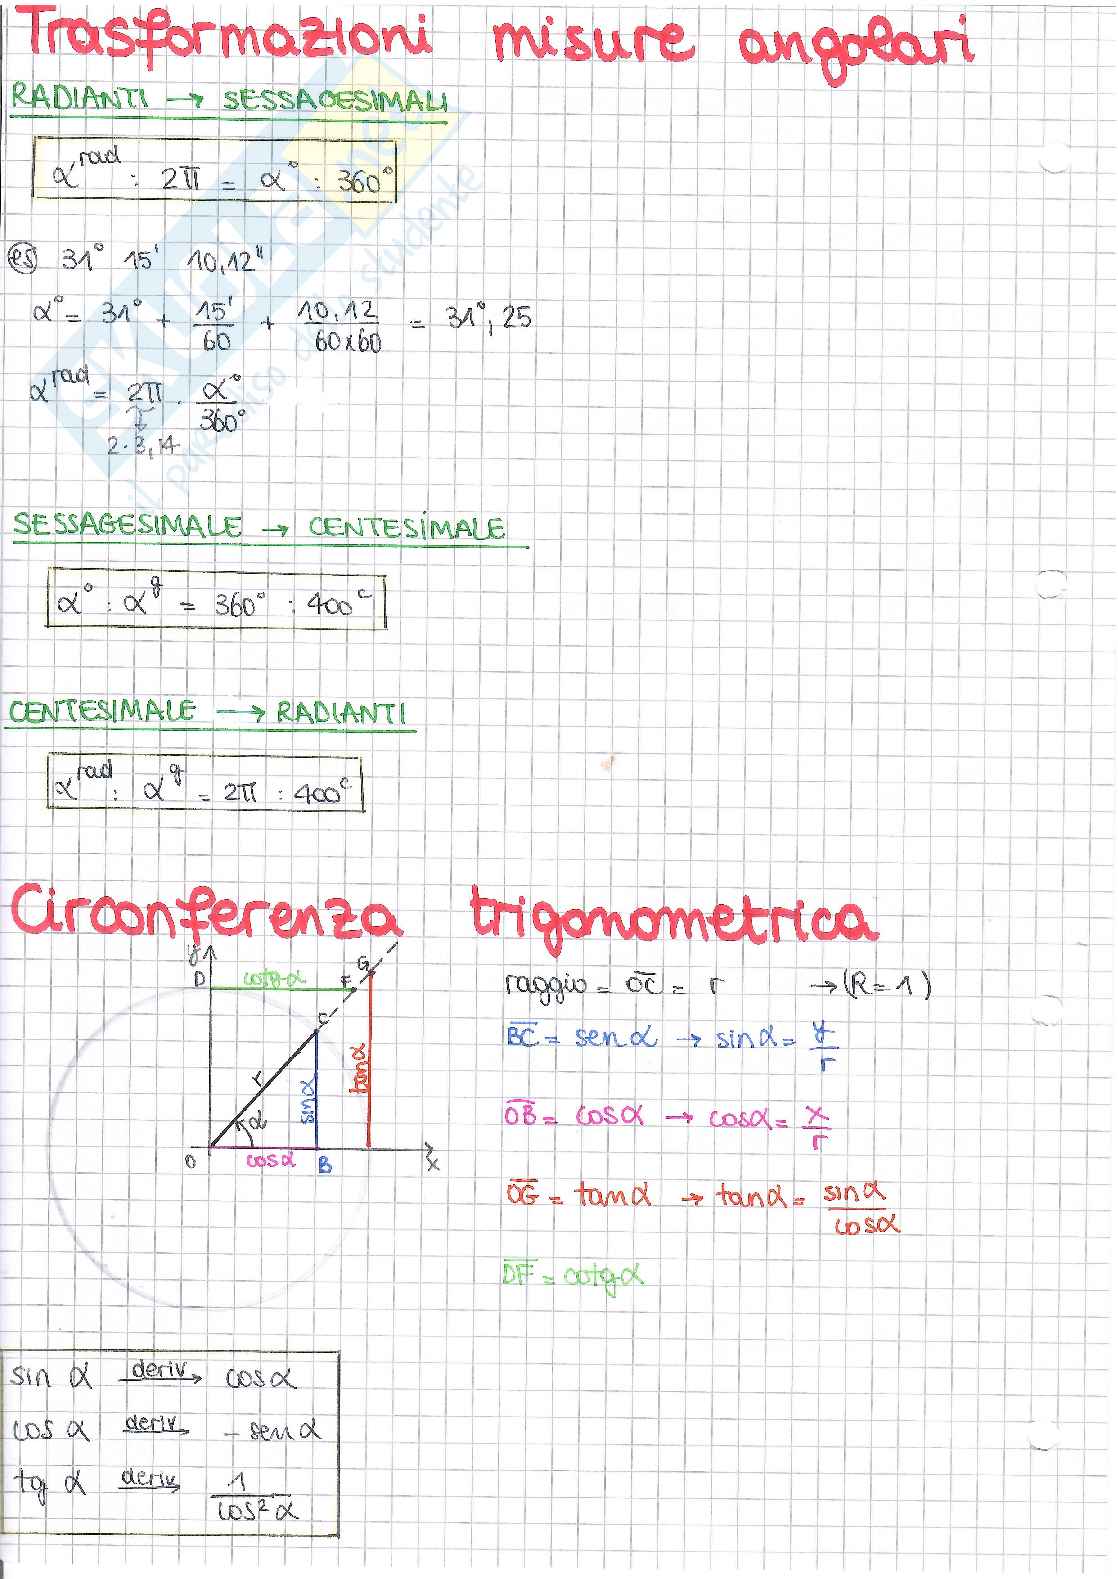 Trasformazioni misure angolari
RADIANTI → SESSAGESIMALI
α^rad : 2π = α° : 360°
es 31° 15' 10,12''
α° = 31° + 15'/60 + 10,12/60x60 = 31°,25
α^rad = 2π · α°/360°
2·3,14
SESSAGESIMALE → CENTESIMALE
α° : α^g = 360° : 400^c
CENTESIMALE → RADIANTI
α^rad : α^g = 2π : 400^c
Circonferenza trigonometrica
y
D cotgα F G
C
r
α
sinα
tanα
O cosα B x
raggio = OC = r → (R=1)
BC = senα → sinα = y/r
OB = cosα → cosα = x/r
OG = tanα → tanα = sinα/cosα
DF = cotgα
sin α deriv→ cosα
cos α deriv→ - senα
tg α deriv→ 1/cos²α